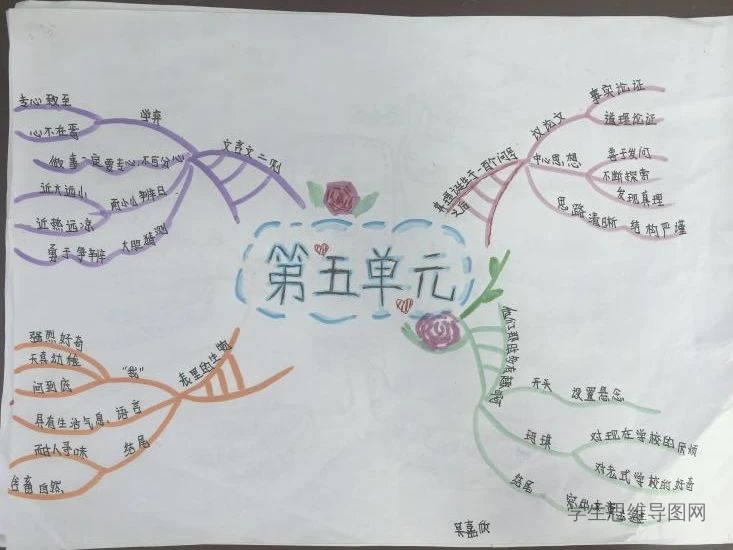 第五单元
文言文二则
学弈
专心致至
心不在焉
做事一定要专心,不可分心
两小儿辩日
近大远小
近热远凉
大胆猜测
勇于争辩
真理诞生于一百个问号
之后
议论文
事实论证
道理论证
中心思想
善于发问
不断探索
发现真理
思路清晰
结构严谨
表里的生物
"我"
强烈好奇
天真幼稚
问到底
语言
具有生活气息
结尾
耐人寻味
含蓄自然
他们那时多有趣啊
开头
设置悬念
玛琪
对现在学校的厌烦
对老式学校的好奇
结尾
学生思维导图网